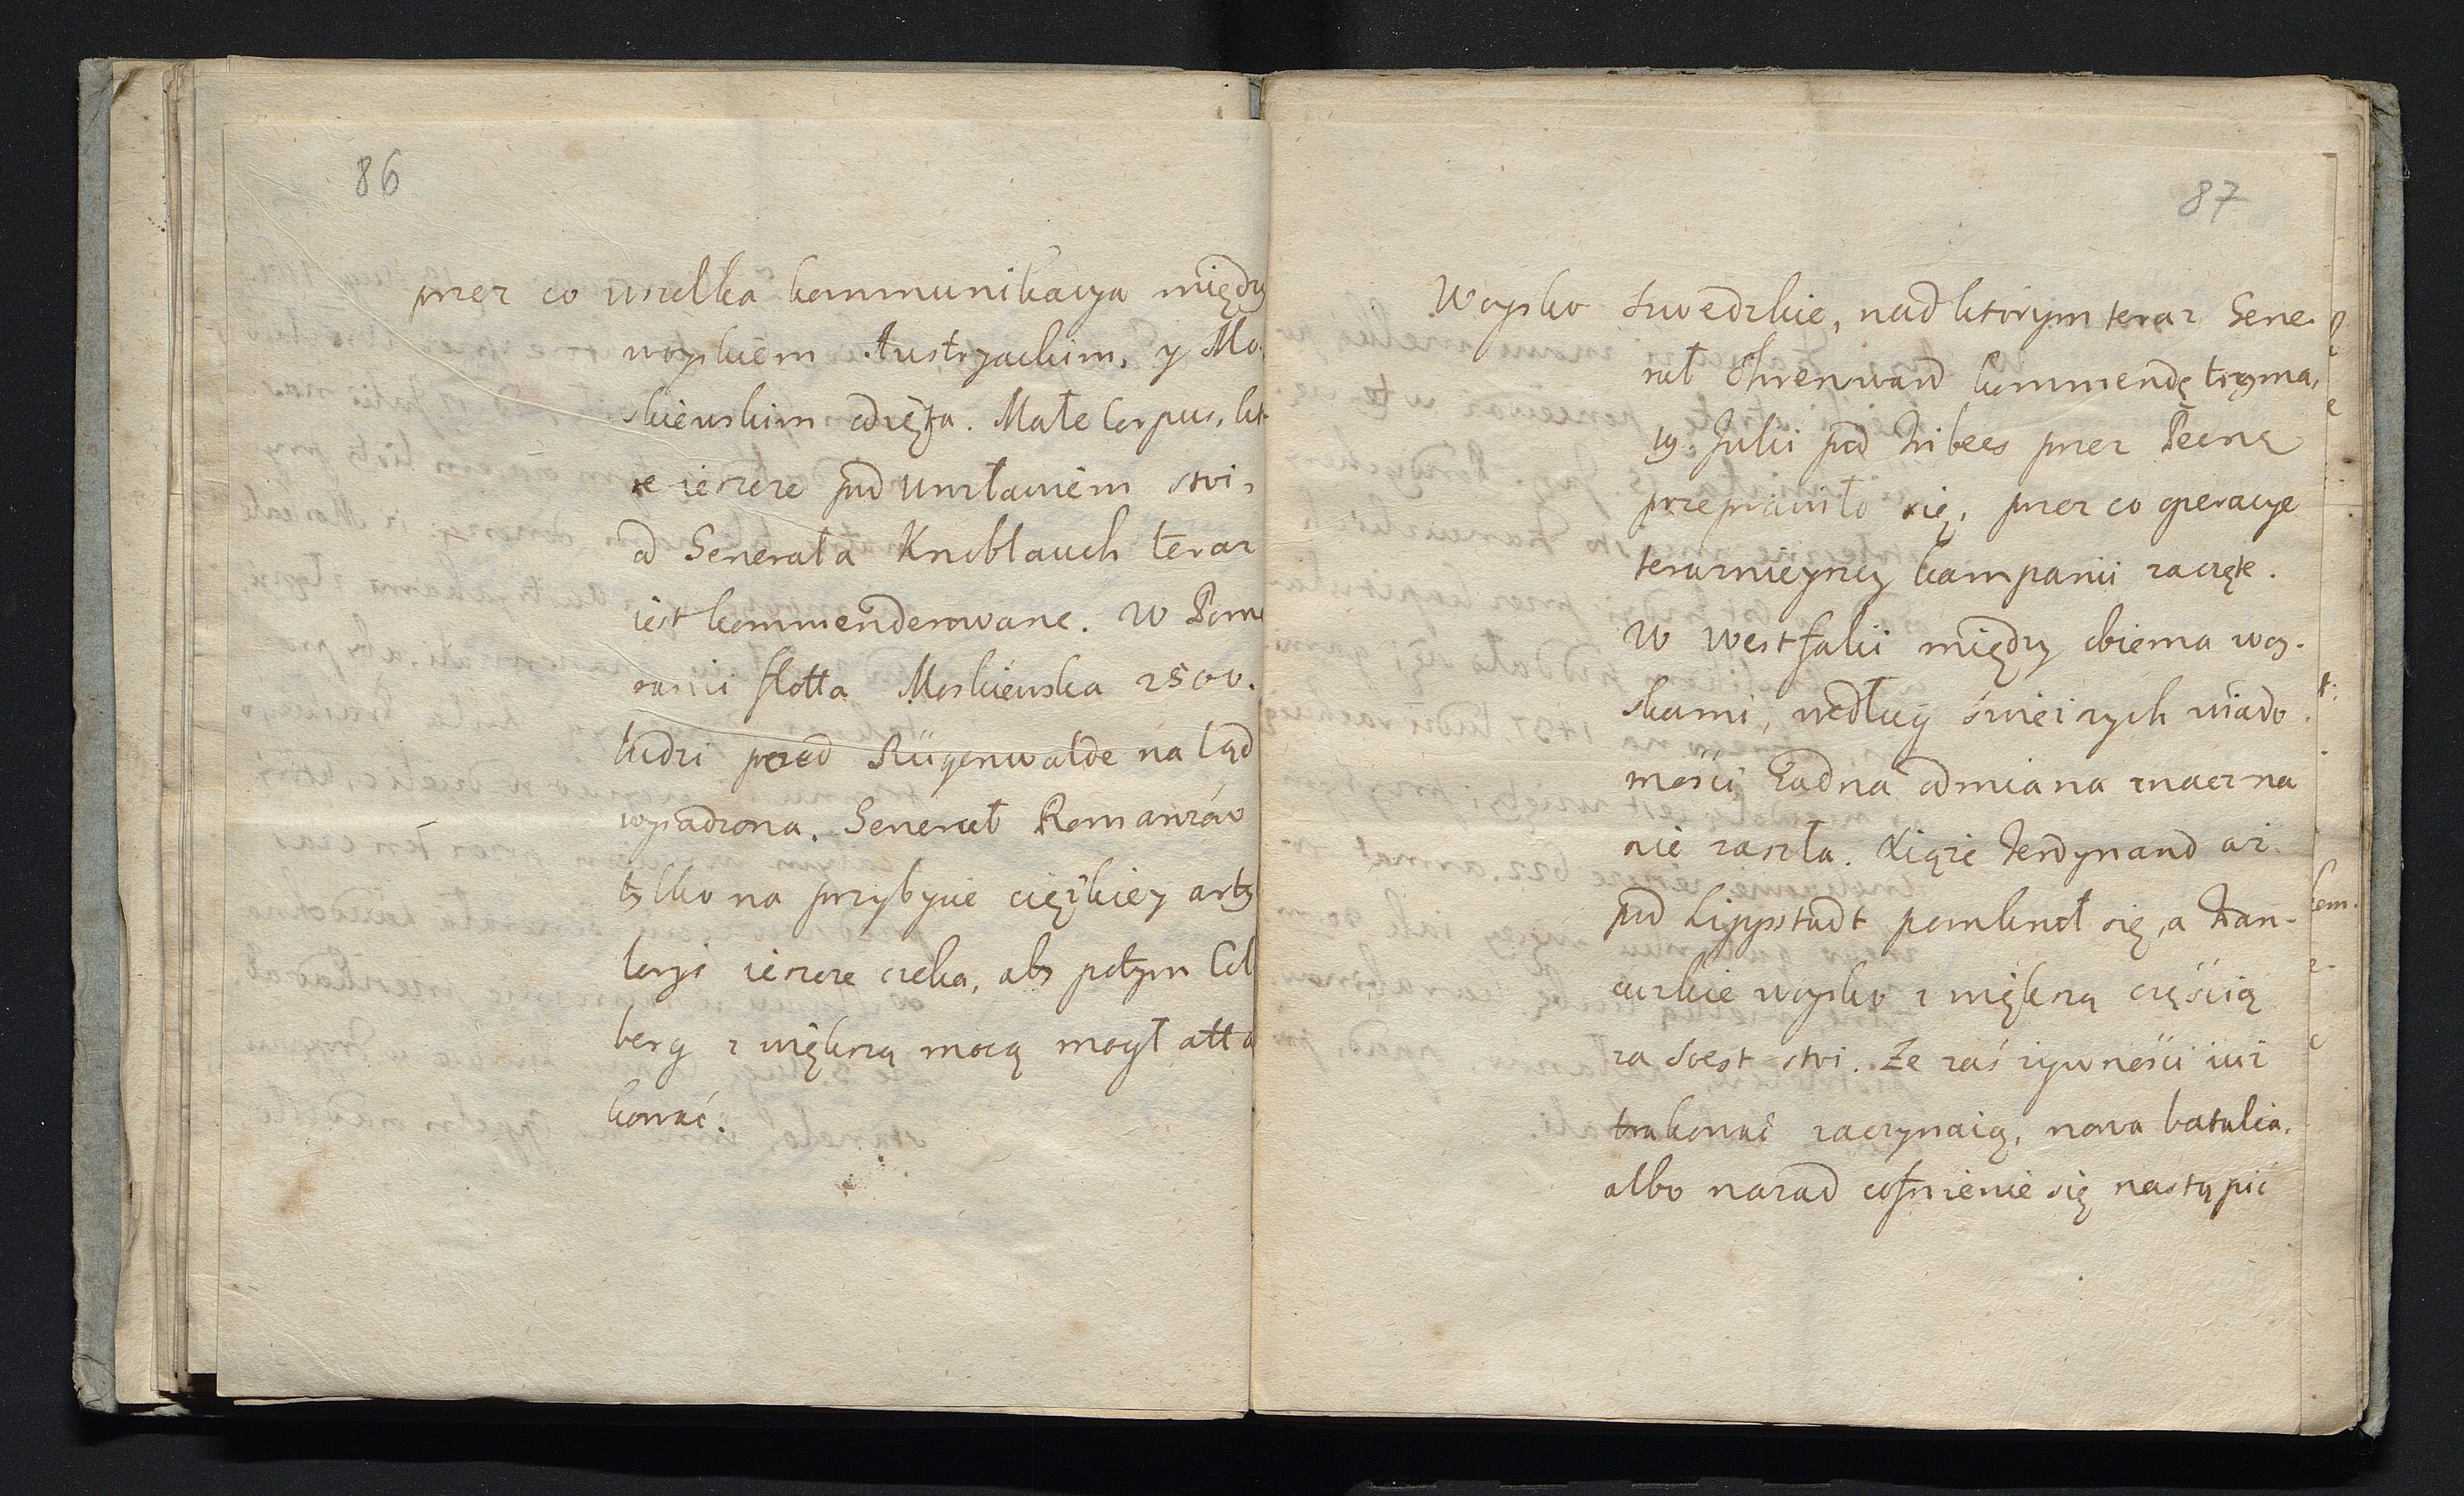 86
przez co wszelka kommunikacya między
woyskiem Austryackim, y Mo-
skiewskim odięta. Małe Corpus, kto-
re ieszcze pod Wrzławiem stoi,
od Generała Knoblauch teraz
iest kommenderowane. W Pome
ranii flotta Moskiewska 2500.
ludzi przed Rügenwalde na ląd
wysadzona. Generał Romanzow
tylko na przybycie cięszkiey arty
leryi ieszcze czeka, aby potym Col
berg z większą mocą mogł atta
kować.
87
Woysko Szwedzkie, nad ktorym teraz Gene-
rał Ehrenward kommendę trzyma,
19. Julii pod Tribees przez Peenę
przeprawiło się, przez co operacye
teraznieyszey kampanii zaczęte.
W Westfalii między obiema woy-
skami, według świeszych wiado-
mości żadna odmiana znaczna
nie zaszła. Xiąże Ferdynand aż
pod Lippstadt pomknoł się, a Fran-
cuzkie woysko z większą częścią
za Soest stoi. Ze zaś żywności iuż
brakować zaczynaią, nowa batalia,
albo nazad cofnienie się nastąpić